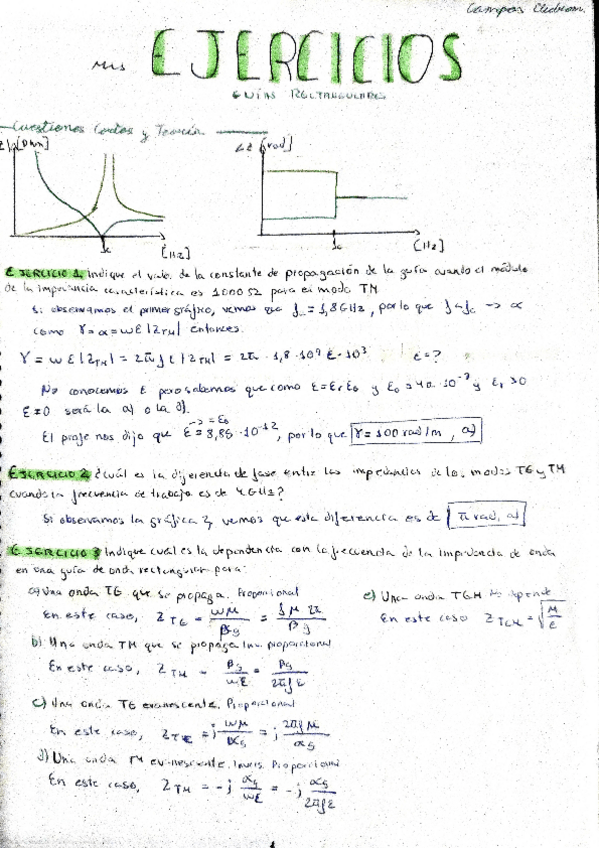 Campos Electrom.
Mis EJERCICIOS
GUÍAS RECTANGULARES
Cuestiones Cortas y Teoría
[Ohm]
∠Z [rad]
fc
[Hz]
fc
[Hz]
EJERCICIO 1. Indique el valor de la constante de propagación de la guía cuando el módulo
de la impedancia característica es 1000 Ω para el modo TM
Si observamos el primer gráfico, vemos que f = 1,8GHz, por lo que f<fc → α
como γ=α=ωε|Z_TM| entonces.
γ = ωε|Z_TM| = 2πfε|Z_TM| = 2π · 1,8·10⁹ ε·10³ ε=?
No conocemos ε pero sabemos que como ε=εrε0 y ε0=4π·10⁻⁷ y εr>0
ε≠0 será la a) o la d).
→ =ε0
El profe nos dijo que ε=8,85·10⁻¹², por lo que γ=100rad/m, a)
EJERCICIO 2. ¿Cuál es la diferencia de fase entre las impedancias de los modos TE y TM
cuando la frecuencia de trabajo es de 4GHz?
Si observamos la gráfica 2, vemos que esta diferencia es de π rad, a)
EJERCICIO 3 Indique cuál es la dependencia con la frecuencia de la impedancia de onda
en una guía de onda rectangular para:
a) Una onda TE que se propaga. Proporcional
En este caso, Z_TE = ωμ/βg = fμ2π/βg
b) Una onda TM que se propaga Inv. proporcional
En este caso, Z_TM = βg/ωε = βg/2πfε
c) Una onda TE evanescente. Proporcional
En este caso, Z_TE = j ωμ/αg = j 2πfμ/αg
d) Una onda TM evanescente. Invers. Proporcional
En este caso, Z_TM = -j αg/ωε = -j αg/2πfε
e) Una onda TEM No depende
En este caso Z_TEM = √(μ/ε)